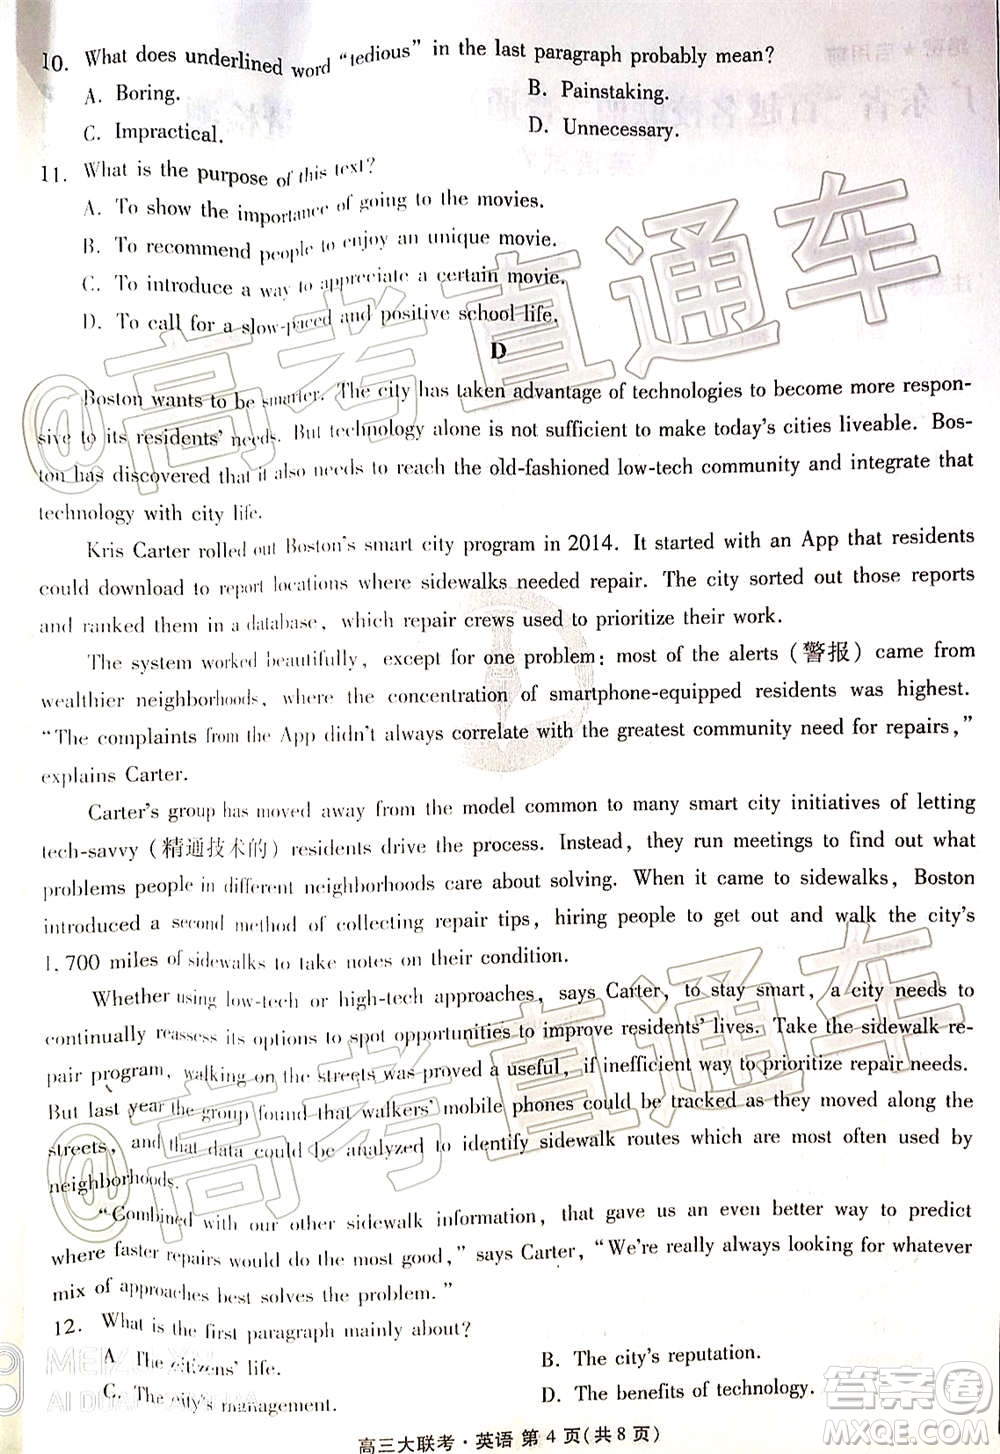 10. What does underlined word "tedious" in the last paragraph probably mean?
A. Boring. B. Painstaking.
C. Impractical. D. Unnecessary.
11. What is the purpose of this text?
A. To show the importance of going to the movies.
B. To recommend people to enjoy an unique movie.
C. To introduce a way to appreciate a certain movie.
D. To call for a slow-paced and positive school life.
D
Boston wants to be smarter. The city has taken advantage of technologies to become more respon-
sive to its residents' needs. But technology alone is not sufficient to make today's cities liveable. Bos-
ton has discovered that it also needs to reach the old-fashioned low-tech community and integrate that
technology with city life.
Kris Carter rolled out Boston's smart city program in 2014. It started with an App that residents
could download to report locations where sidewalks needed repair. The city sorted out those reports
and ranked them in a database, which repair crews used to prioritize their work.
The system worked beautifully, except for one problem: most of the alerts (警报) came from
wealthier neighborhoods, where the concentration of smartphone-equipped residents was highest.
"The complaints from the App didn't always correlate with the greatest community need for repairs,"
explains Carter.
Carter's group has moved away from the model common to many smart city initiatives of letting
tech-savvy (精通技术的) residents drive the process. Instead, they run meetings to find out what
problems people in different neighborhoods care about solving. When it came to sidewalks, Boston
added a second method of collecting repair tips, hiring people to get out and walk the city's
1,700 miles of sidewalks to take notes on their condition.
Whether using low-tech or high-tech approaches, says Carter, to stay smart, a city needs to
continually reassess its options to spot opportunities to improve residents' lives. Take the sidewalk re-
pair program, walking on the streets was proved a useful, if inefficient way to prioritize repair needs.
But last year the group found that walkers' mobile phones could be tracked as they moved along the
streets, and that data could be analyzed to identify sidewalk routes which are most often used by
neighborhoods.
"Combined with our other sidewalk information, that gave us an even better way to predict
where faster repairs would do the most good," says Carter, "We're really always looking for whatever
mix of approaches best solves the problem."
12. What is the first paragraph mainly about?
A. The citizens' life. B. The city's reputation.
C. The city's management. D. The benefits of technology.
高三大联考·英语 第 4 页(共 8 页)
@高考直通车
@高考直通车
答案卷